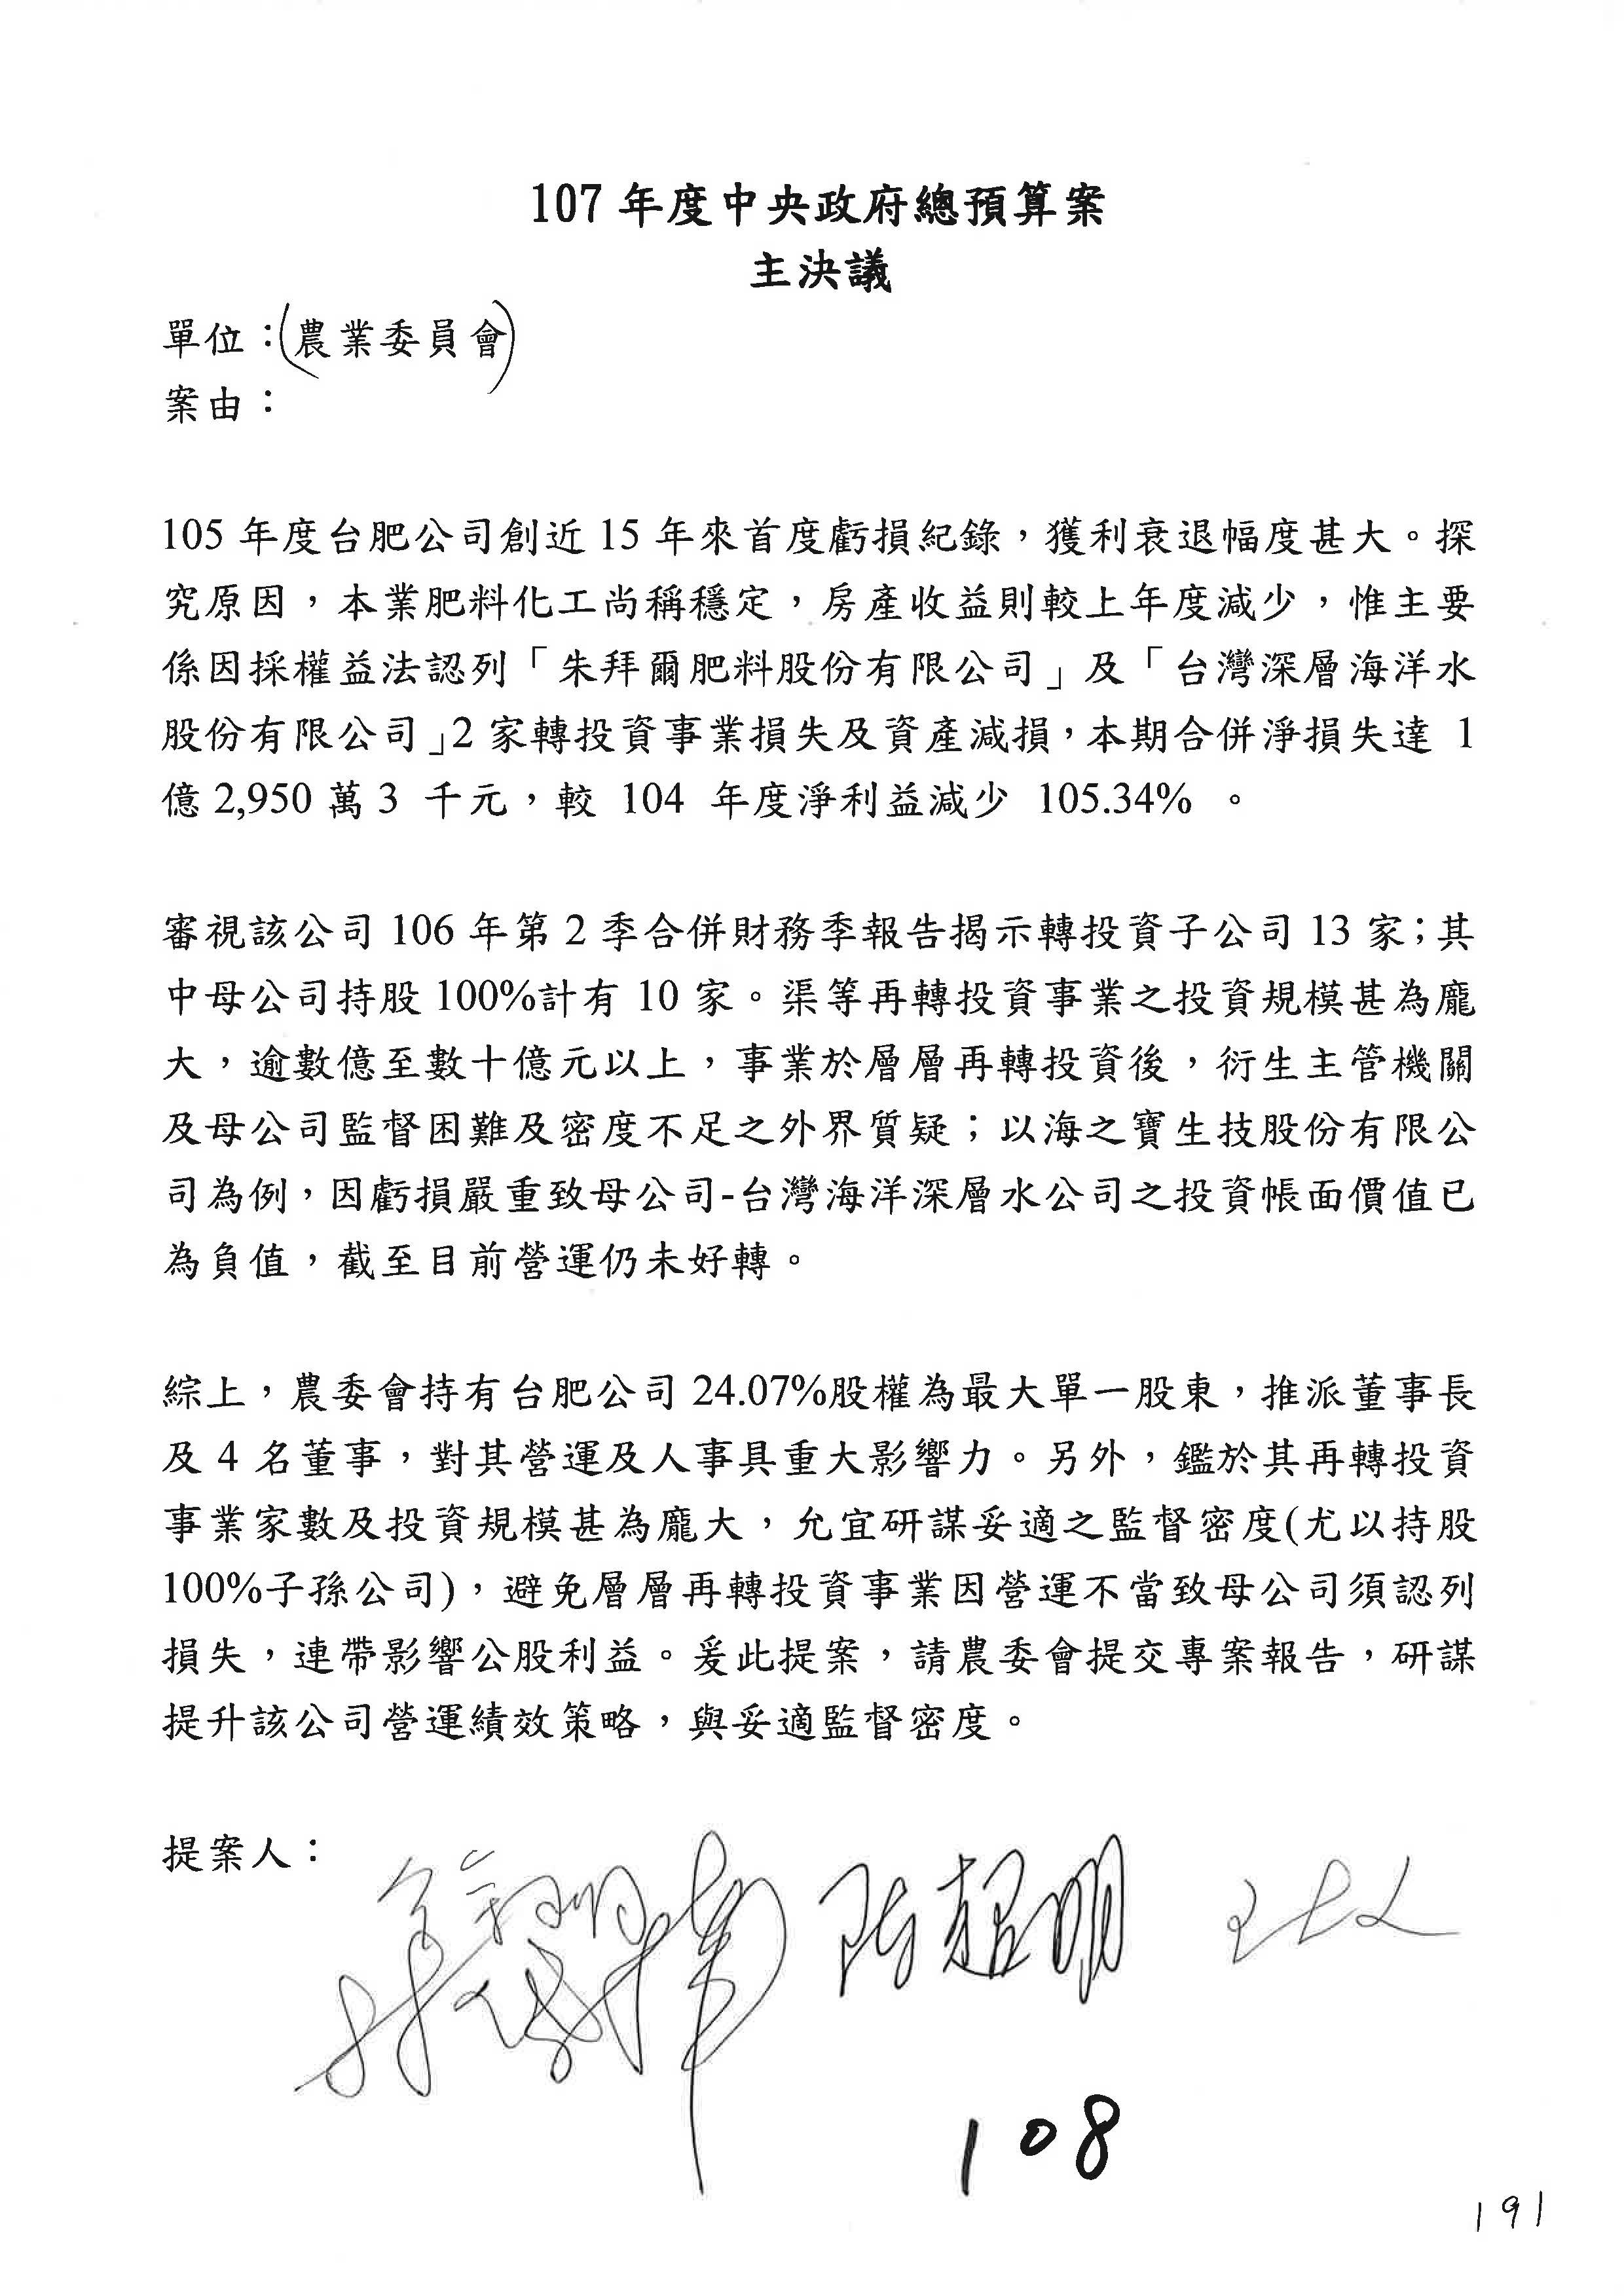 107 年度中央政府總預算案
主決議
單位：(農業委員會)
案由：
105 年度台肥公司創近 15 年來首度虧損紀錄，獲利衰退幅度甚大。探
究原因，本業肥料化工尚稱穩定，房產收益則較上年度減少，惟主要
係因採權益法認列「朱拜爾肥料股份有限公司」及「台灣深層海洋水
股份有限公司」2 家轉投資事業損失及資產減損，本期合併淨損失達 1
億 2,950 萬 3 千元，較 104 年度淨利益減少 105.34% 。
審視該公司 106 年第 2 季合併財務季報告揭示轉投資子公司 13 家；其
中母公司持股 100%計有 10 家。渠等再轉投資事業之投資規模甚為龐
大，逾數億至數十億元以上，事業於層層再轉投資後，衍生主管機關
及母公司監督困難及密度不足之外界質疑；以海之寶生技股份有限公
司為例，因虧損嚴重致母公司-台灣海洋深層水公司之投資帳面價值已
為負值，截至目前營運仍未好轉。
綜上，農委會持有台肥公司 24.07%股權為最大單一股東，推派董事長
及 4 名董事，對其營運及人事具重大影響力。另外，鑑於其再轉投資
事業家數及投資規模甚為龐大，允宜研謀妥適之監督密度(尤以持股
100%子孫公司)，避免層層再轉投資事業因營運不當致母公司須認列
損失，連帶影響公股利益。爰此提案，請農委會提交專案報告，研謀
提升該公司營運績效策略，與妥適監督密度。
提案人：
陳超明
108
191